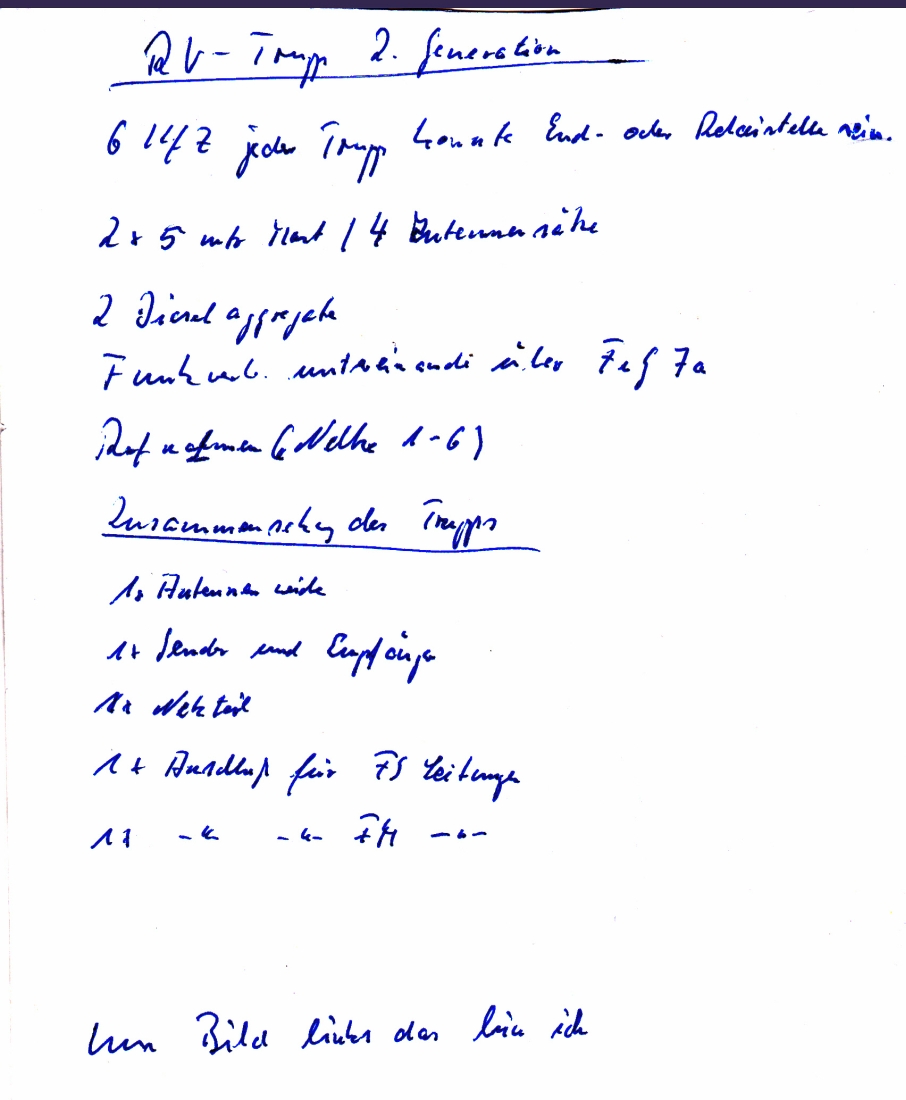 RV-Trupp 2. Generation
6 Kfz jeder Trupp konnte End- oder Relaistelle sein.
2x 5 mtr Mast / 4 Antennen
2 Dieselaggregate
Funkverb. untereinander über FuG 7a
Rufnahmen (Nelke 1-6)
Zusammensetzg des Trupps
1x Antennenweiche
1x Sender und Empfänger
1x Netzteil
1x Anschluß für FS Leitungen
1x -"- -"- -"-
Bild links das bin ich